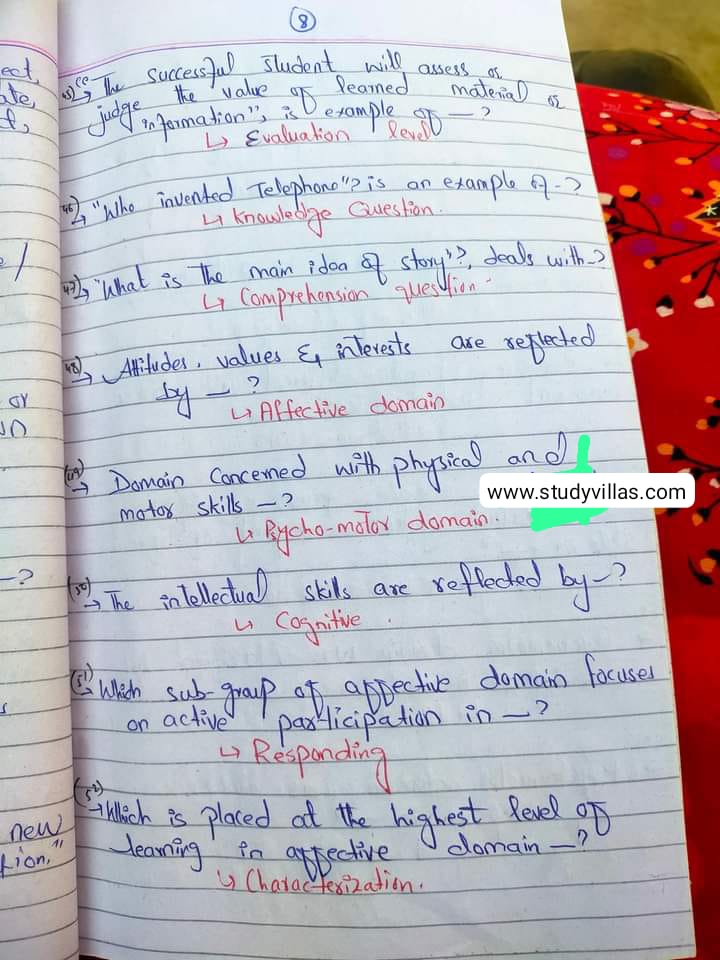 8
45) → "The successful student will assess or
judge the value of learned material or
information", is example of —?
↳ Evaluation level
46) → "Who invented Telephone"? is an example of -?
↳ Knowledge Question.
47) → "What is the main idea of story"?, deals with -?
↳ Comprehension question.
48) → Attitudes, values & interests are reflected
by — ?
↳ Affective domain
(49) → Domain Concerned with physical and
motor skills —?
↳ Psycho-motor domain.
www.studyvillas.com
(50) → The intellectual skills are reflected by —?
↳ Cognitive.
(51) → Which sub-group of affective domain focuses
on active participation in —?
↳ Responding
(52) → Which is placed at the highest level of
learning in affective domain —?
↳ Characterization.
ect,
ate,
or
—?
new
tion."